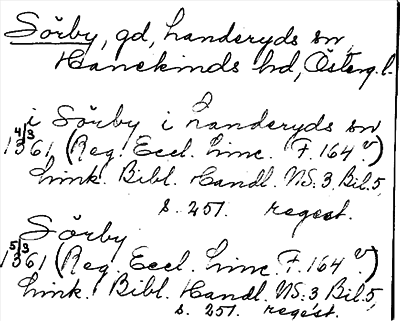 Sörby, gd, Landeryds sn,
Hanekinds hd, Östergl.
i Sörby i Landeryds sn
4/3 1361 (Reg. Eccl. Linc. F. 164 v)
Link. Bibl. Handl. NS. 3, Bil. 5,
s. 251. regest.
Sörby
5/3 1361 (Reg. Eccl. Linc. F. 164 v.)
Link. Bibl. Handl. NS. 3, Bil. 5,
s. 251. regest.